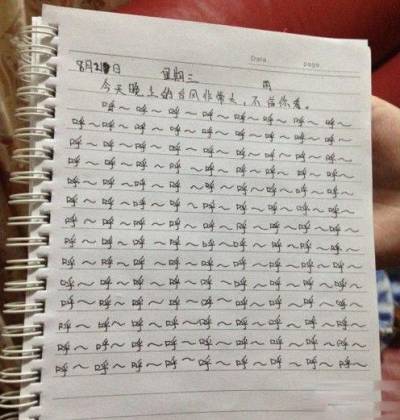 Date. page.
8月21日 星期三 雨
今天晚上的台风非常大，不信你看。
呼～呼～呼～呼～呼～呼～呼～呼～
呼～呼～呼～呼～呼～呼～呼～呼～呼～
呼～呼～呼～呼～呼～呼～呼～呼～呼～
呼～呼～呼～呼～呼～呼～呼～呼～呼～
呼～呼～呼～呼～呼～呼～呼～呼～呼～
呼～呼～呼～呼～呼～呼～呼～呼～呼～
呼～呼～呼～呼～呼～呼～呼～呼～呼～
呼～呼～呼～呼～呼～呼～呼～呼～呼～
呼～呼～呼～呼～呼～呼～呼～呼～呼～
呼～呼～呼～呼～呼～呼～呼～呼～呼～
呼～呼～呼～呼～呼～呼～呼～呼～呼～
呼～呼～呼～呼～呼～呼～呼～呼～呼～
呼～呼～呼～呼～呼～呼～呼～呼～呼～
呼～呼～呼～呼～呼～呼～呼～呼～呼～